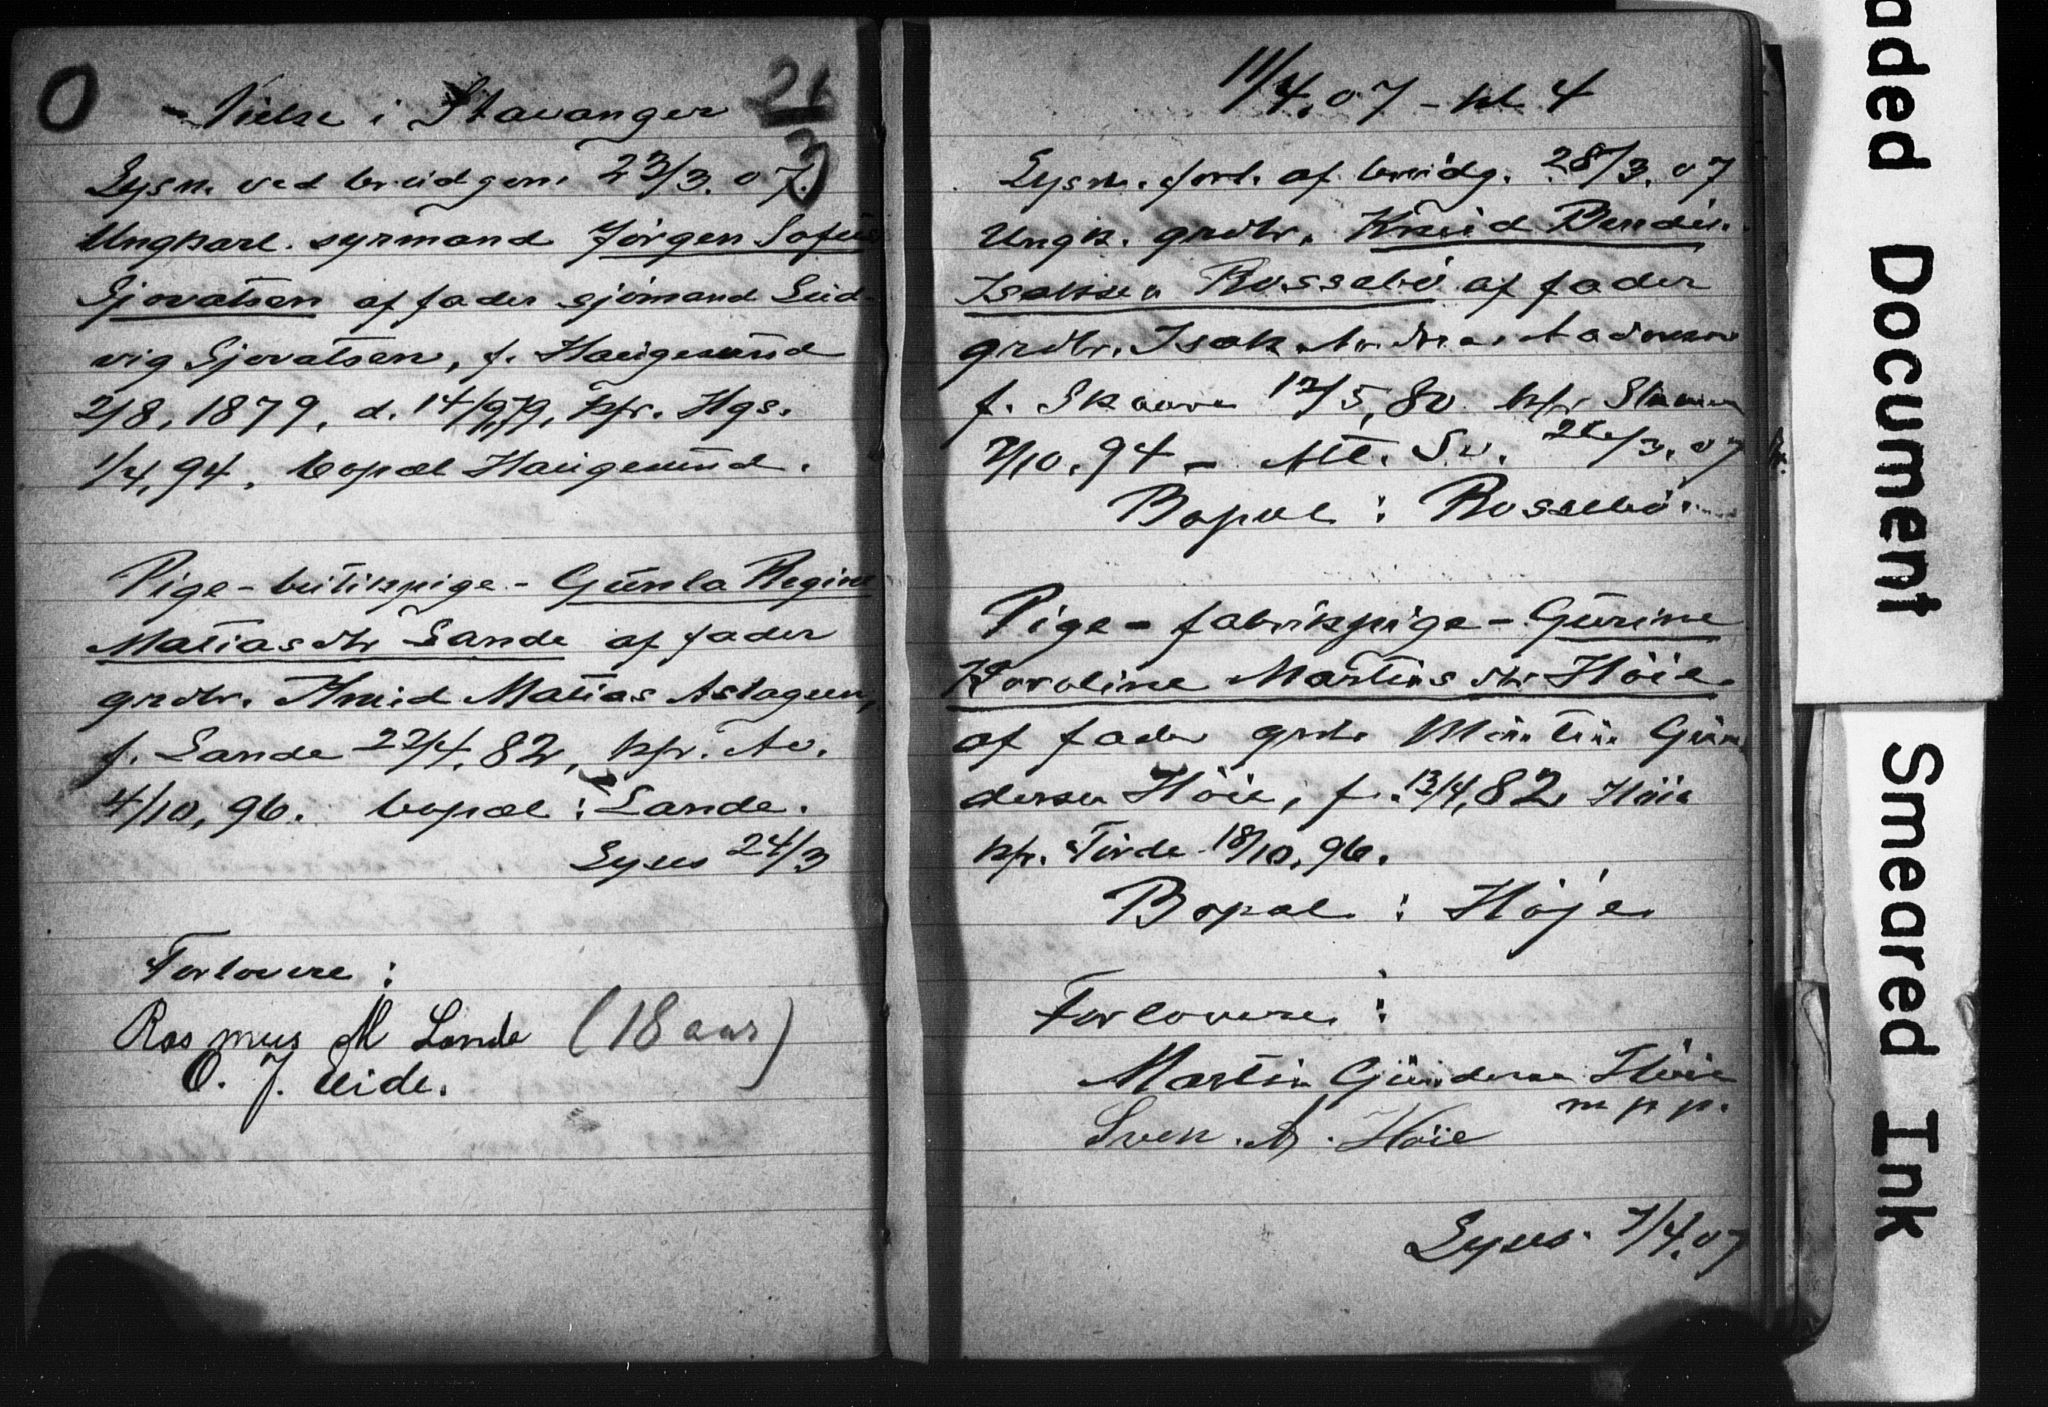 0
- Vielse i Stavanger
Lysn. ved brudgom 23/3. 07.
Ungkarl. syrmand Jörgen Sofus
Sjovatsen af fader sjömand Lud-
vig Sjovatsen, f. Haugesund
2/8, 1879, d. 14/9, 79, kfr. Hgs.
1/4, 94, bopæl Haugesund.
Pige - butikpige - Gunla Regine
Matiasdtr Sande af fader
grdbr. Knud Matias Aslagsen,
f. Sande 22/4, 82, kfr. Av.
4/10, 96. bopæl : Sande.
Lyses 24/3
Forlovere :
Rasmus M Sande (18 aar)
O. J. Eide.
11/4, 07 - kl. 4
Lysn. forl. af brudg. 28/3. 07
Ungk. grdbr. Knud Bendix
Isaksen Rossebö af fader
grdbr. Isak
f. Skaare 12/5, 80 kfr
7/10, 94 - Att. Sv. 26/3, 07
Bopæl : Rossebö
Pige - fabrikpige - Gurine
Karoline Martinsdtr Höie
af fader grdb. Martin Gun-
dersen Höie, f. 13/4, 82 Höie
kfr. Förde 18/10, 96.
Bopæl : Höje
Forlovere :
Martin Gundersen Höie
m p p.
Sven. A. Höie
Lyses 7/4. 07
aded Document
Smeared Ink